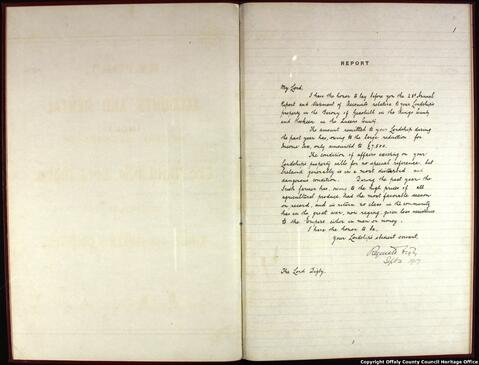 1
REPORT
My Lord,
I have the honor to lay before you the 28th Annual
Report and Statement of Accounts relative to your Lordship's
property in the Barony of Geashill in the Kings County
and in the Queens County.
The amount remitted to your Lordship during
the past year has, owing to the large reduction for
Income Tax, only amounted to £7,500.
The condition of affairs existing on your
Lordship's property calls for no special reference, but
Ireland generally is in a most disturbed and
dangerous condition. During the past year the
Irish farmer has, owing to the high prices of all
agricultural produce, had the most favorable season
on record, and in return no class in the community
has in the great war, now raging, given less assistance
to the Empire either in men or money.
I have the honor to be,
Your Lordship's obedient servant
Reginald Digby
Sept 1917
The Lord Digby.
1
Copyright Offaly County Council Heritage Office